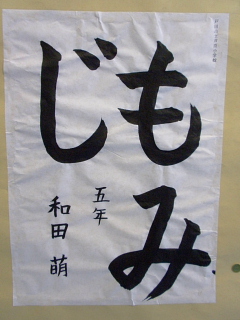 もみ
じ
五年
和田 萌